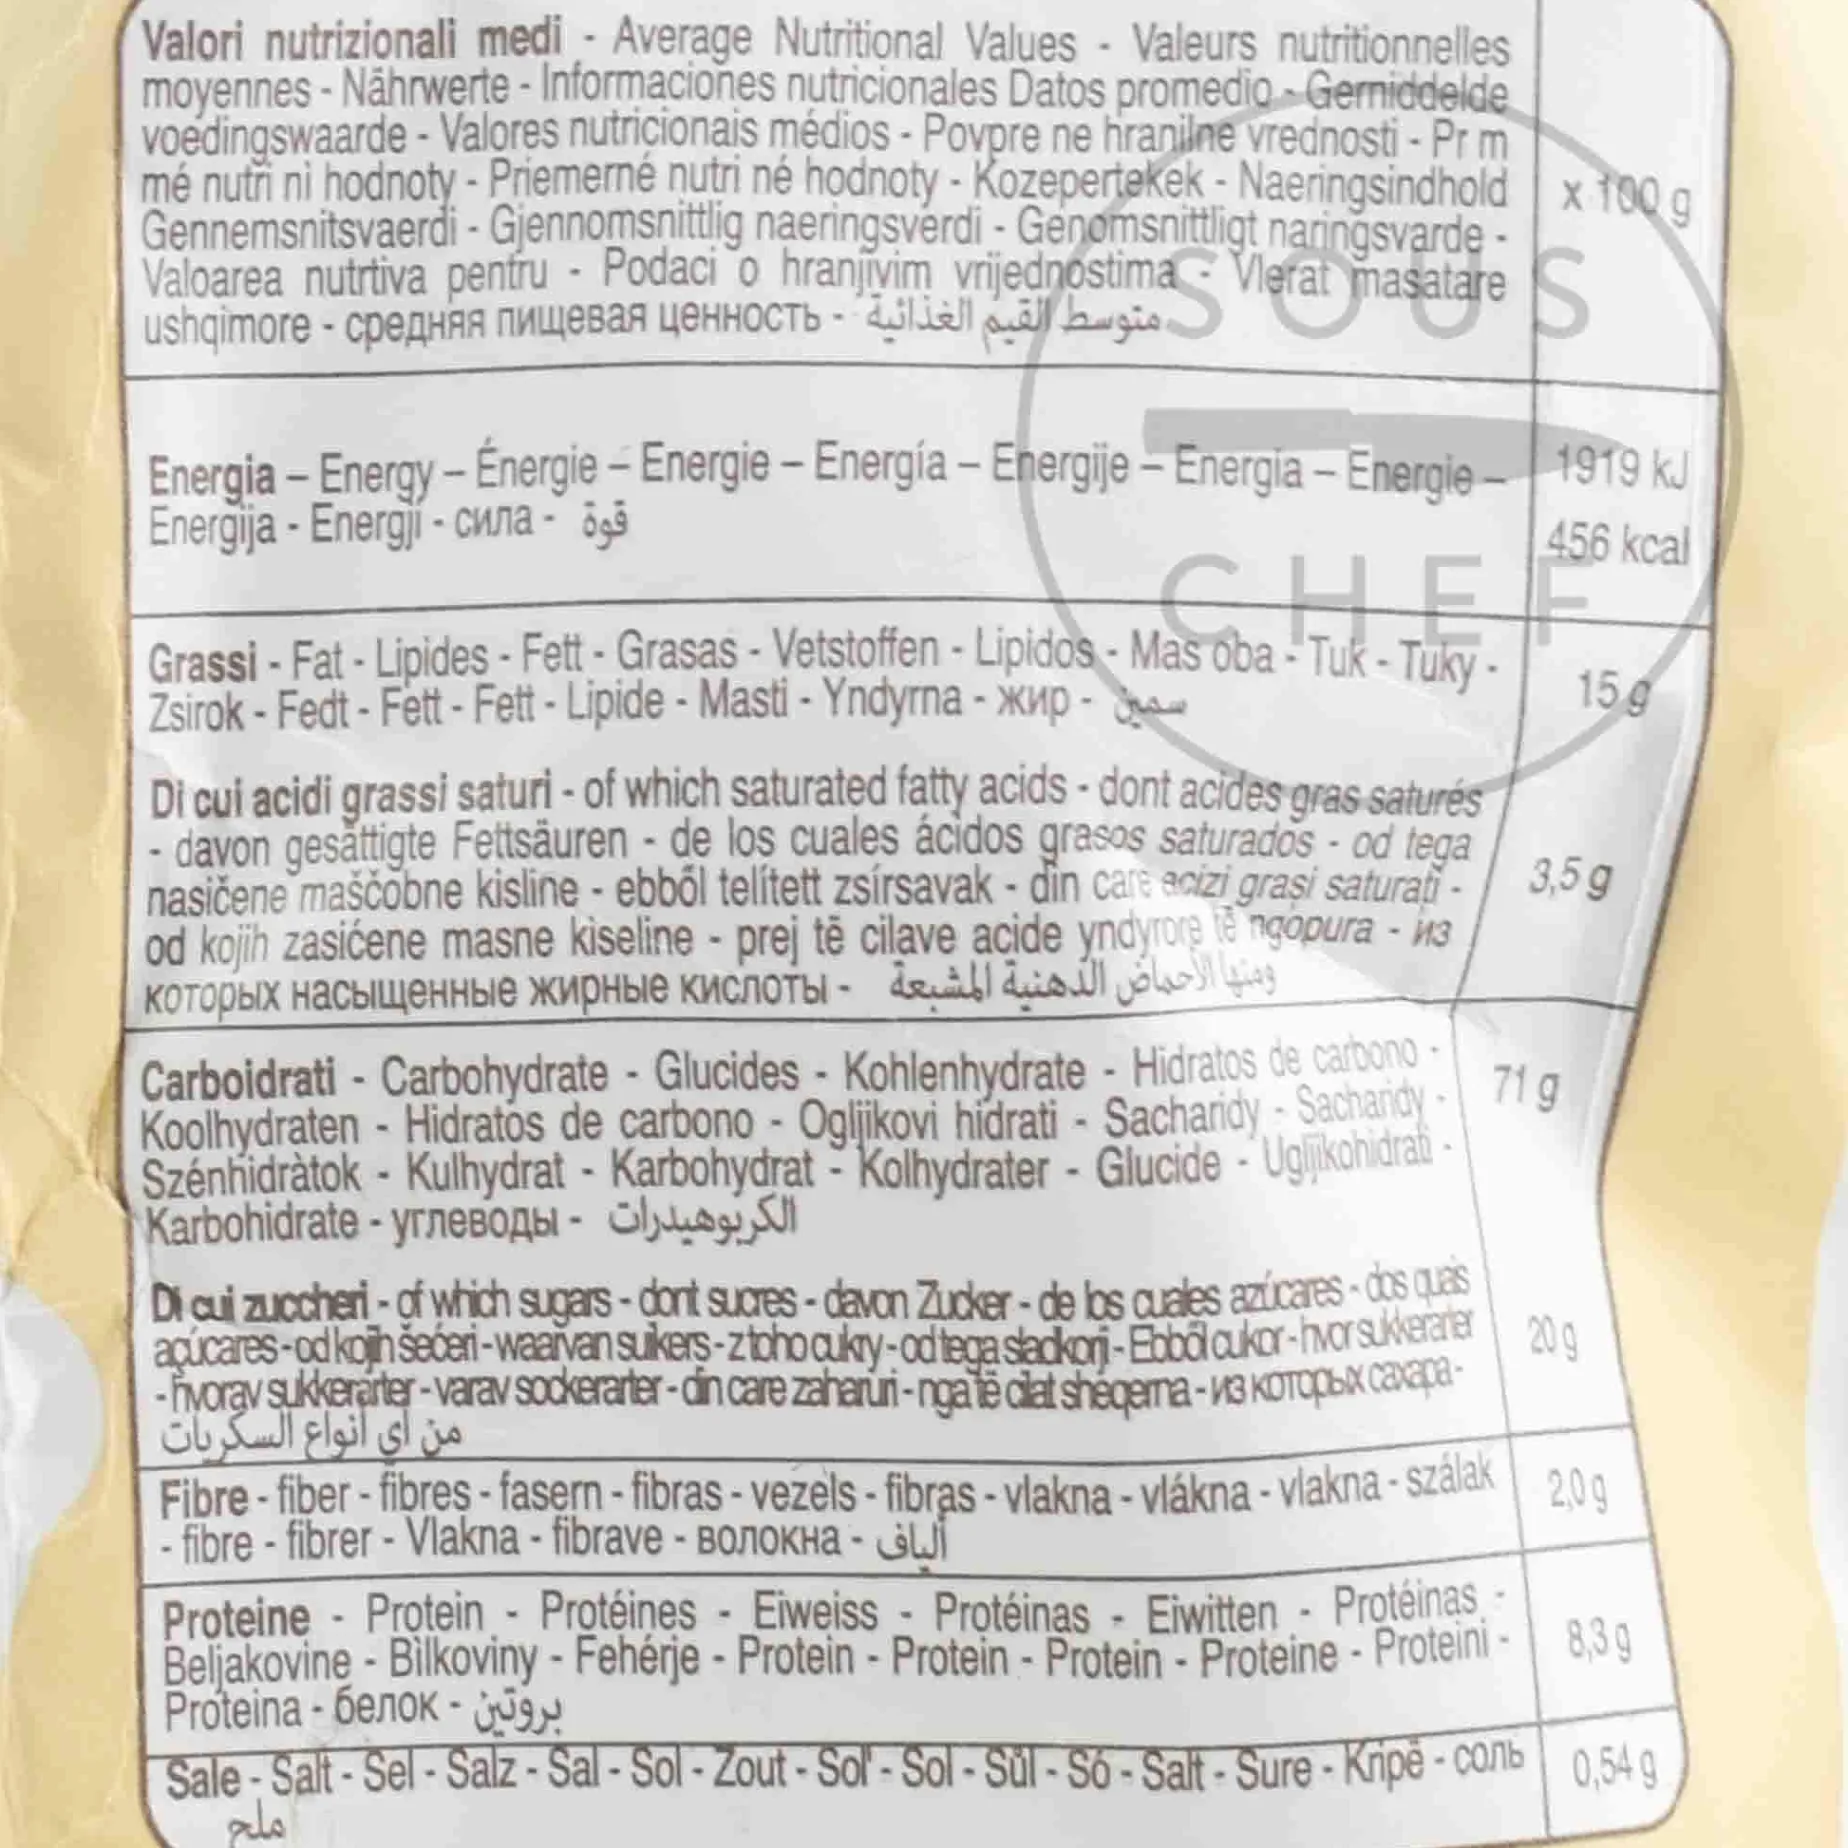 Valori nutrizionali medi - Average Nutritional Values - Valeurs nutritionnelles
moyennes - Nährwerte - Informaciones nutricionales Datos promedio - Gemiddelde
voedingswaarde - Valores nutricionais médios - Povpre ne hranilne vrednosti - Pr m
mé nutri ni hodnoty - Priemerné nutri né hodnoty - Kozepertekek - Naeringsindhold
x 100 g
Gennemsnitsvaerdi - Gjennomsnittlig naeringsverdi - Genomsnittligt naringsvarde -
Valoarea nutrtiva pentru - Podaci o hranjivim vrijednostima - Vlerat masatare
ushqimore - средняя пищевая ценность - متوسط القيم الغذائية
SOUS
CHEF
Energia – Energy – Énergie – Energie – Energía – Energije – Energia – Energie –
1919 kJ
Energija - Energji - сила - قوة
456 kcal
Grassi - Fat - Lipides - Fett - Grasas - Vetstoffen - Lipidos - Mas oba - Tuk - Tuky -
15 g
Zsirok - Fedt - Fett - Fett - Lipide - Masti - Yndyrna - жир - سمين
Di cui acidi grassi saturi - of which saturated fatty acids - dont acides gras saturés
- davon gesättigte Fettsäuren - de los cuales ácidos grasos saturados - od tega
nasičene maščobne kisline - ebből telített zsírsavak - din care acizi grași saturați -
3,5 g
od kojih zasićene masne kiseline - prej të cilave acide yndyrore të ngopura - из
которых насыщенные жирные кислоты - ومنها الأحماض الدهنية المشبعة
Carboidrati - Carbohydrate - Glucides - Kohlenhydrate - Hidratos de carbono -
71 g
Koolhydraten - Hidratos de carbono - Ogljikovi hidrati - Sacharidy - Sacharidy -
Szénhidràtok - Kulhydrat - Karbohydrat - Kolhydrater - Glucide - Ugljikohidrati -
Karbohidrate - углеводы - الكربوهيدرات
Di cui zuccheri - of which sugars - dont sucres - davon Zucker - de los cuales azúcares - dos quais
açúcares - od kojih šećeri - waarvan suikers - z toho cukry - od tega sladkorji - Ebből cukor - hvor sukkerarter
20 g
- hvorav sukkerarter - varav sockerarter - din care zaharuri - nga të cilat sheqerna - из которых сахара -
من أي أنواع السكريات
Fibre - fiber - fibres - fasern - fibras - vezels - fibras - vlakna - vlákna - vlakna - szálak
2,0 g
- fibre - fibrer - Vlakna - fibrave - волокна - ألياف
Proteine - Protein - Protéines - Eiweiss - Protéinas - Eiwitten - Protéinas -
Beljakovine - Bìlkoviny - Fehérje - Protein - Protein - Protein - Proteine - Proteini -
8,3 g
Proteina - белок - بروتين
Sale - Salt - Sel - Salz - Sal - Sol - Zout - Sol' - Sol - Sůl - Só - Salt - Sure - Kripë - соль
0,54 g
ملح